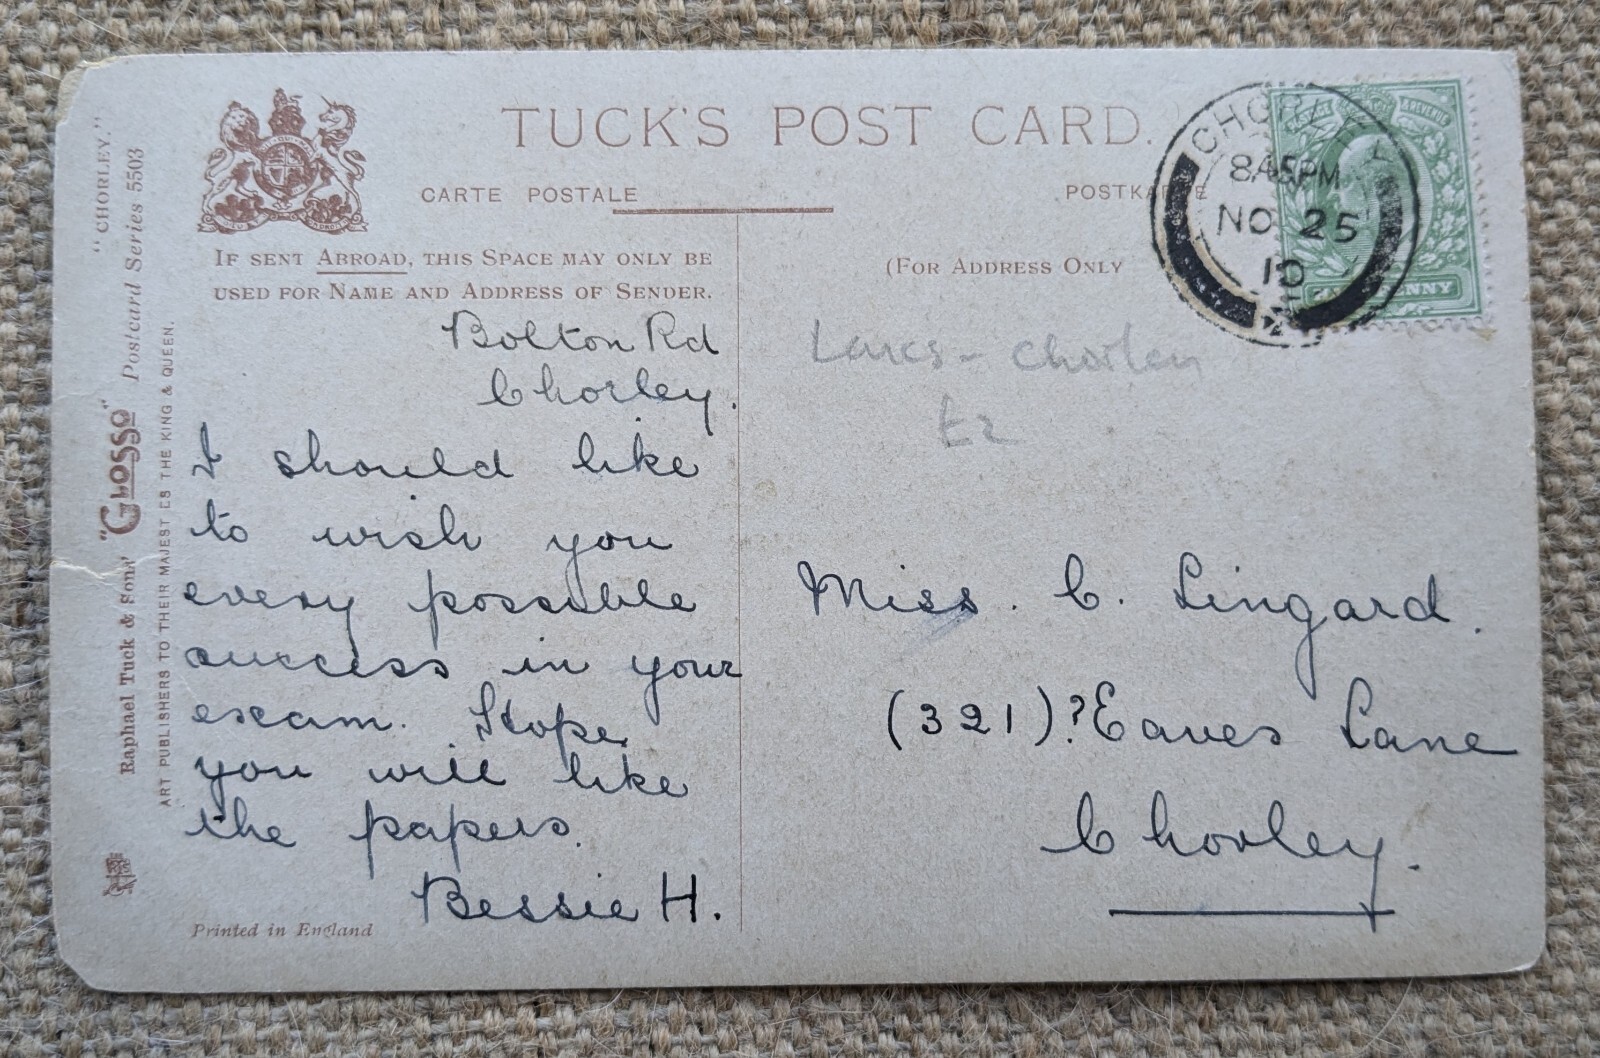 TUCK'S POST CARD.
CARTE POSTALE
POSTKARTE
IF SENT ABROAD, THIS SPACE MAY ONLY BE
USED FOR NAME AND ADDRESS OF SENDER.
(FOR ADDRESS ONLY
CHORLEY
8.45PM
NO 25
10
HALFPENNY
"CHORLEY."
Raphael Tuck & Sons' "GLOSSO" Postcard Series 5503
ART PUBLISHERS TO THEIR MAJESTIES THE KING & QUEEN.
Bolton Rd
Chorley.
I should like
to wish you
every possible
success in your
exam. Hope
you will like
the papers.
Bessie H.
Printed in England
Lancs - Chorley
£2
Miss. C. Lingard.
(321)? Eaves Lane
Chorley.